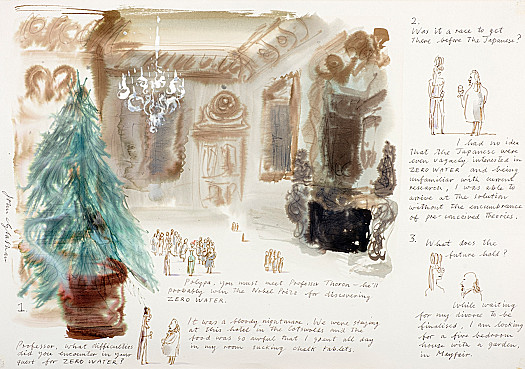 you must meet Professor Thoron – he'll
probably win the Nobel Prize for discovering
ZERO WATER.
1.
Professor, what difficulties
did you encounter in your
quest for ZERO WATER?
It was a bloody nightmare. We were staying
at this hotel in the Cotswolds and the
food was so awful that I spent all day
in my room sucking chalk tablets.
2.
Was it a race to get
there before the Japanese?
I had no idea
that the Japanese were
even vaguely interested in
ZERO WATER and being
unfamiliar with current
research, I was able to
arrive at the solution
without the encumbrance
of pre-conceived theories.
3.
What does the
future hold?
While waiting
for my divorce to be
finalised, I am looking
for a five-bedroom
house with a garden,
in Mayfair.
John Glashan